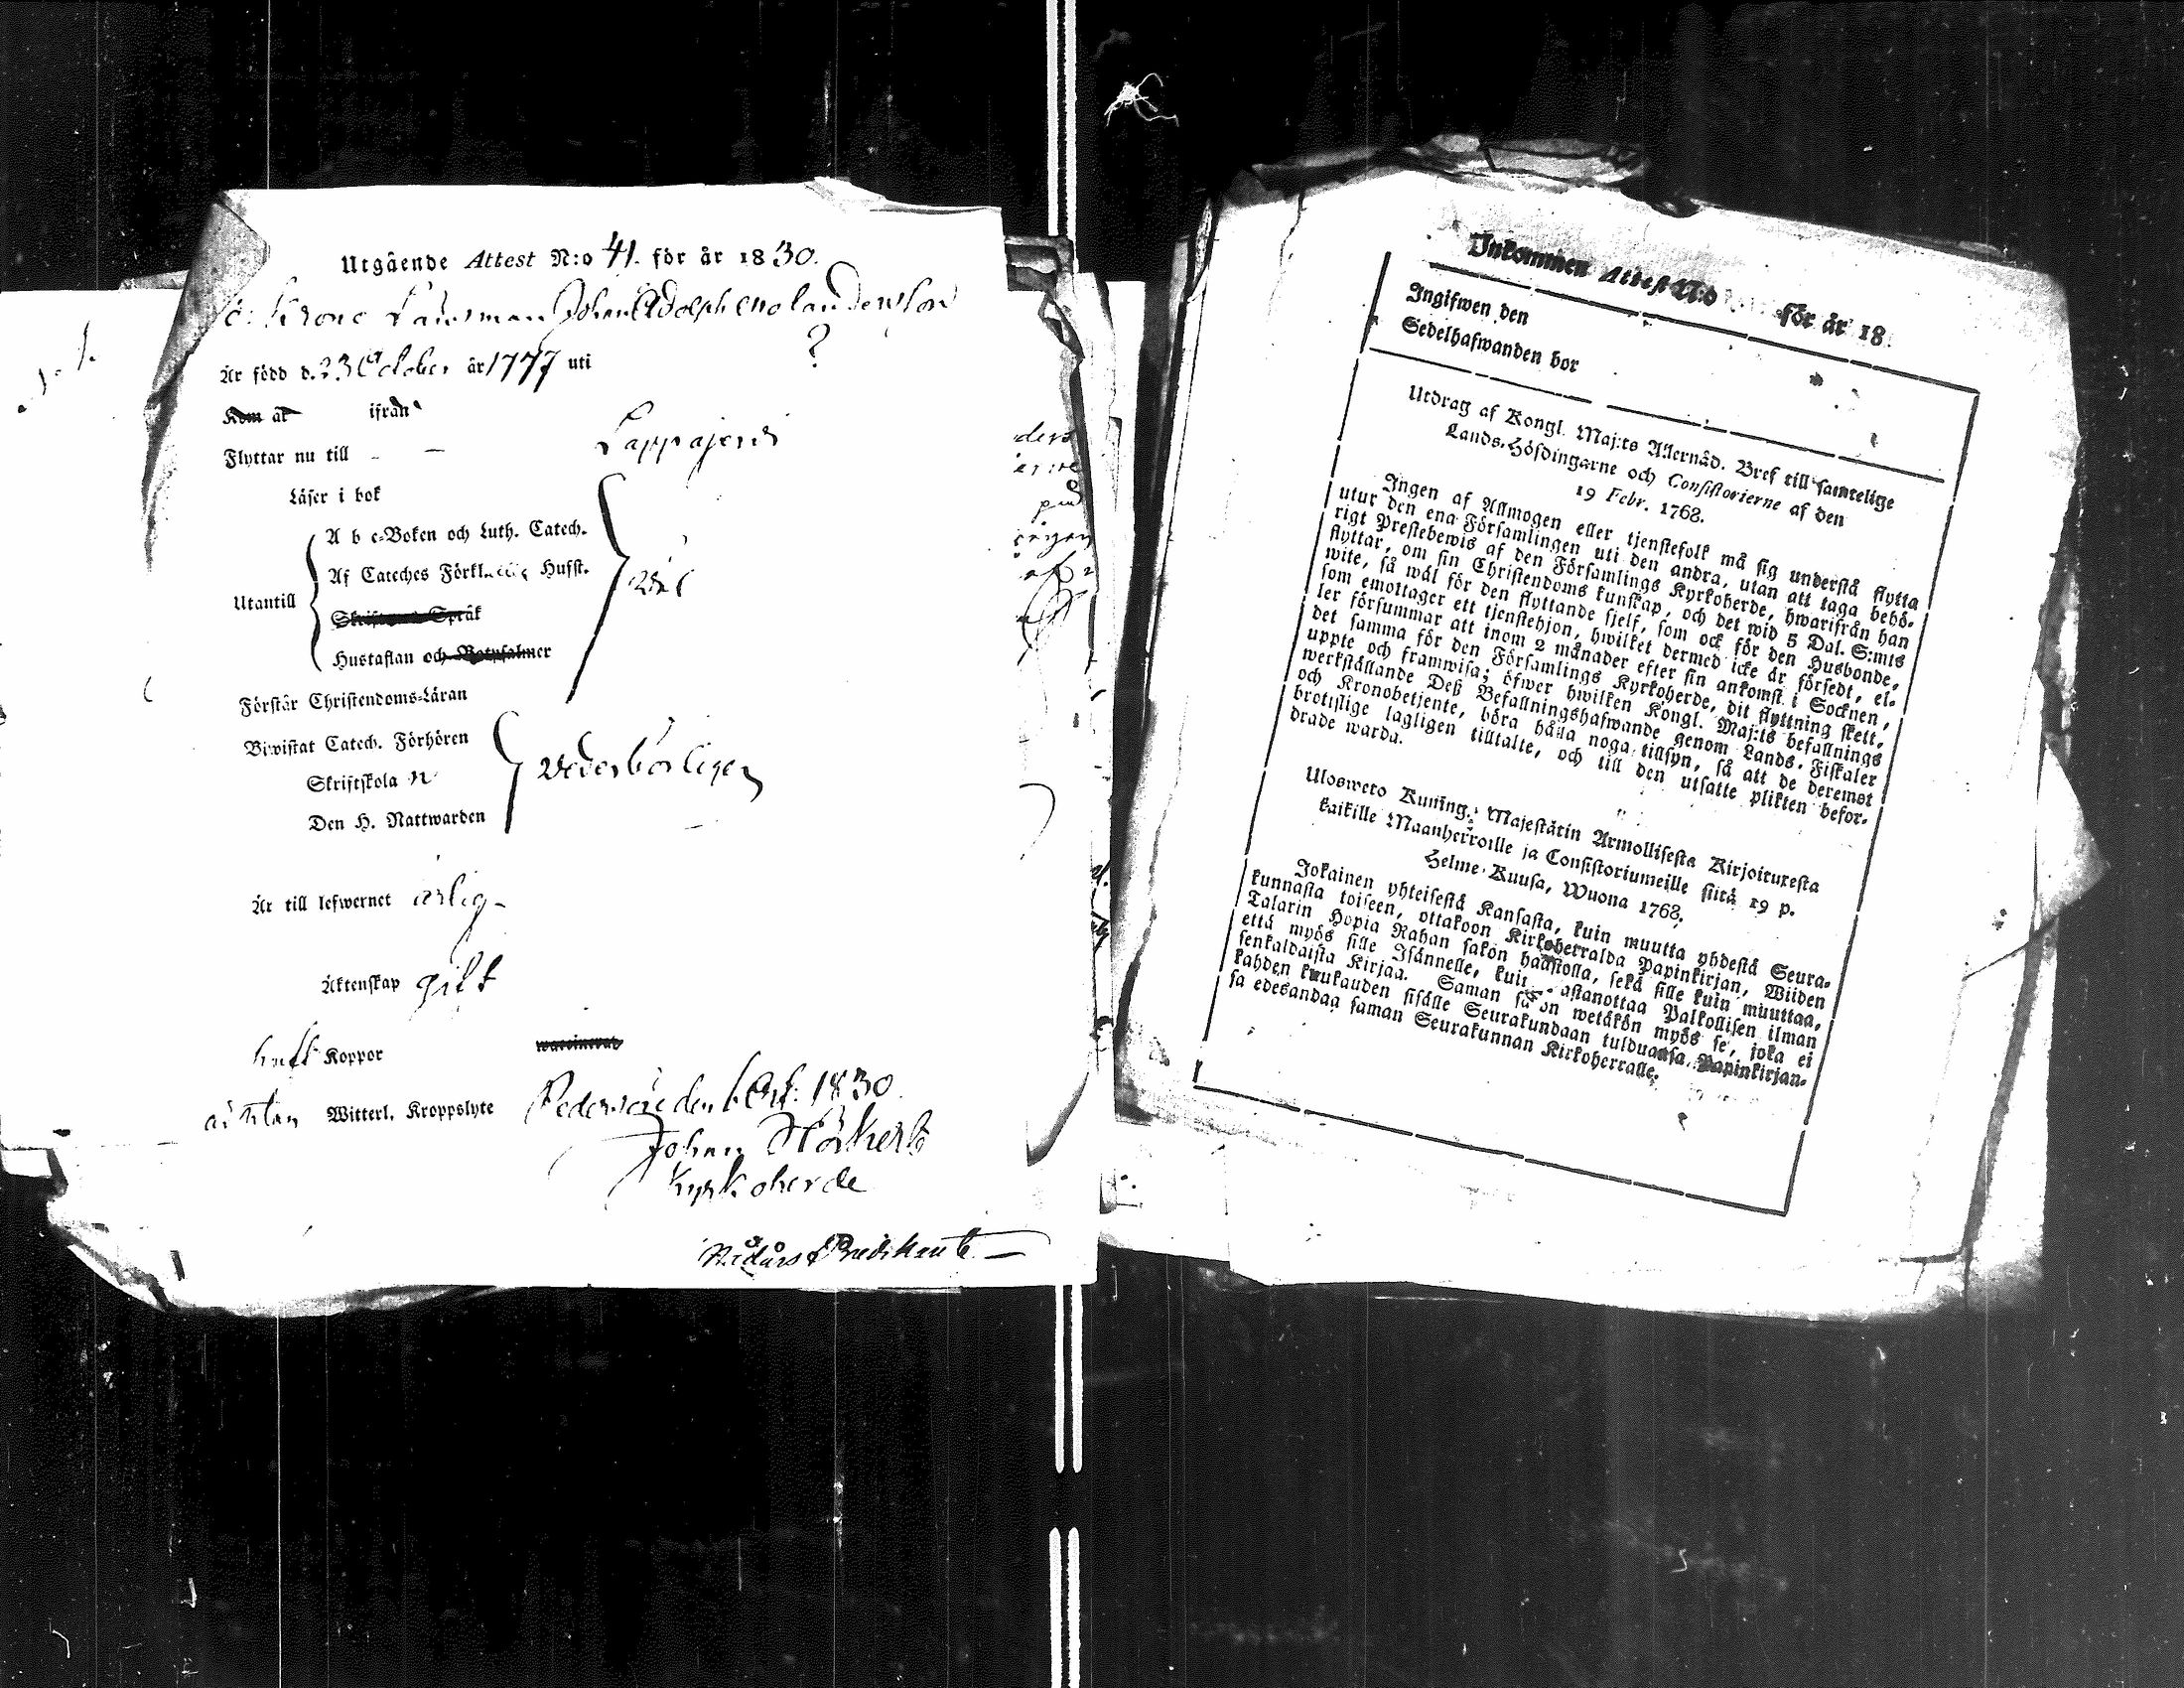 Utgående Attest N:o 41. för år 1830.
Krono Länsman Johan Adolph
?
Är född d. 23 October år 1777 uti
Kom år ifrån
Flyttar nu till - - Lappajervi
Läser i bok
A b c-Boken och Luth. Catech.
Af Cateches Förkl. Husst.
Utantill
Skriftenes Språk
Hustaflan och Botpsalmer
väl
Förstår Christendoms-Läran
Biwistat Catech. Förhören
Skriftskola
Den H. Nattwarden
vederbörligen
Är till lefwernet ärlig
Äktenskap gift
haft Koppor waccinerat
är utan Witterl. Kroppslyte
Pedersöre den 6 Oct: 1830.
Johan
Kyrkoherde
Nådårs Predikant
Inkommen Attest N:o för år 18
Ingifwen den
Sedelhafwanden bor
Utdrag af Kongl. Maj:ts Allernåd. Bref till samtelige
Lands-Höfdingarne och Consistorierne af den
19 Febr. 1768.
Ingen af Allmogen eller tjenstefolk må sig understå flytta
utur den ena Församlingen uti den andra, utan att taga behö-
rigt Prestebewis af den Församlings Kyrkoherde, hwarifrån han
flyttar, om sin Christendoms kunskap, och det wid 5 Dal. S:mts
wite, så wäl för den flyttande sjelf, som ock för den Husbonde,
som emottager ett tjenstehjon, hwilket dermed icke är försedt, el-
ler försummar att inom 2 månader efter sin ankomst i Socknen,
det samma för den Församlings Kyrkoherde, dit flyttning skett,
uppte och framwisa; öfwer hwilken Kongl. Maj:ts befallnings
werkställande Deß Befallningshafwande genom Lands-Fiskaler
och Kronobetjente, böra hålla noga tillsyn, så att de deremot
brotlige lagligen tilltalte, och till den utsatte plikten befor-
drade warda.
Ulosweto Kuning. Majestätin Armollisesta Kirjoituxesta
kaikille Maanherroille ja Consistoriumeille siitä 19 p.
Helme-Kuusa, Wuona 1768.
Jokainen yhteisestä Kansasta, kuin muutta yhdestä Seura-
kunnasta toiseen, ottakoon Kirkoherralda Papinkirjan, Wiiden
Talarin Hopia Rahan sakon haastolla, sekä sille kuin muuttaa,
että myös sille Isännelle, kuin astanottaa Palkollisen ilman
senkaldaista Kirjaa. Saman sakon wetäkön myös se, joka ei
kahden kuukauden sisälle Seurakundaan tulduansa, Papinkirjan-
sa edesandaa saman Seurakunnan Kirkoherralle.